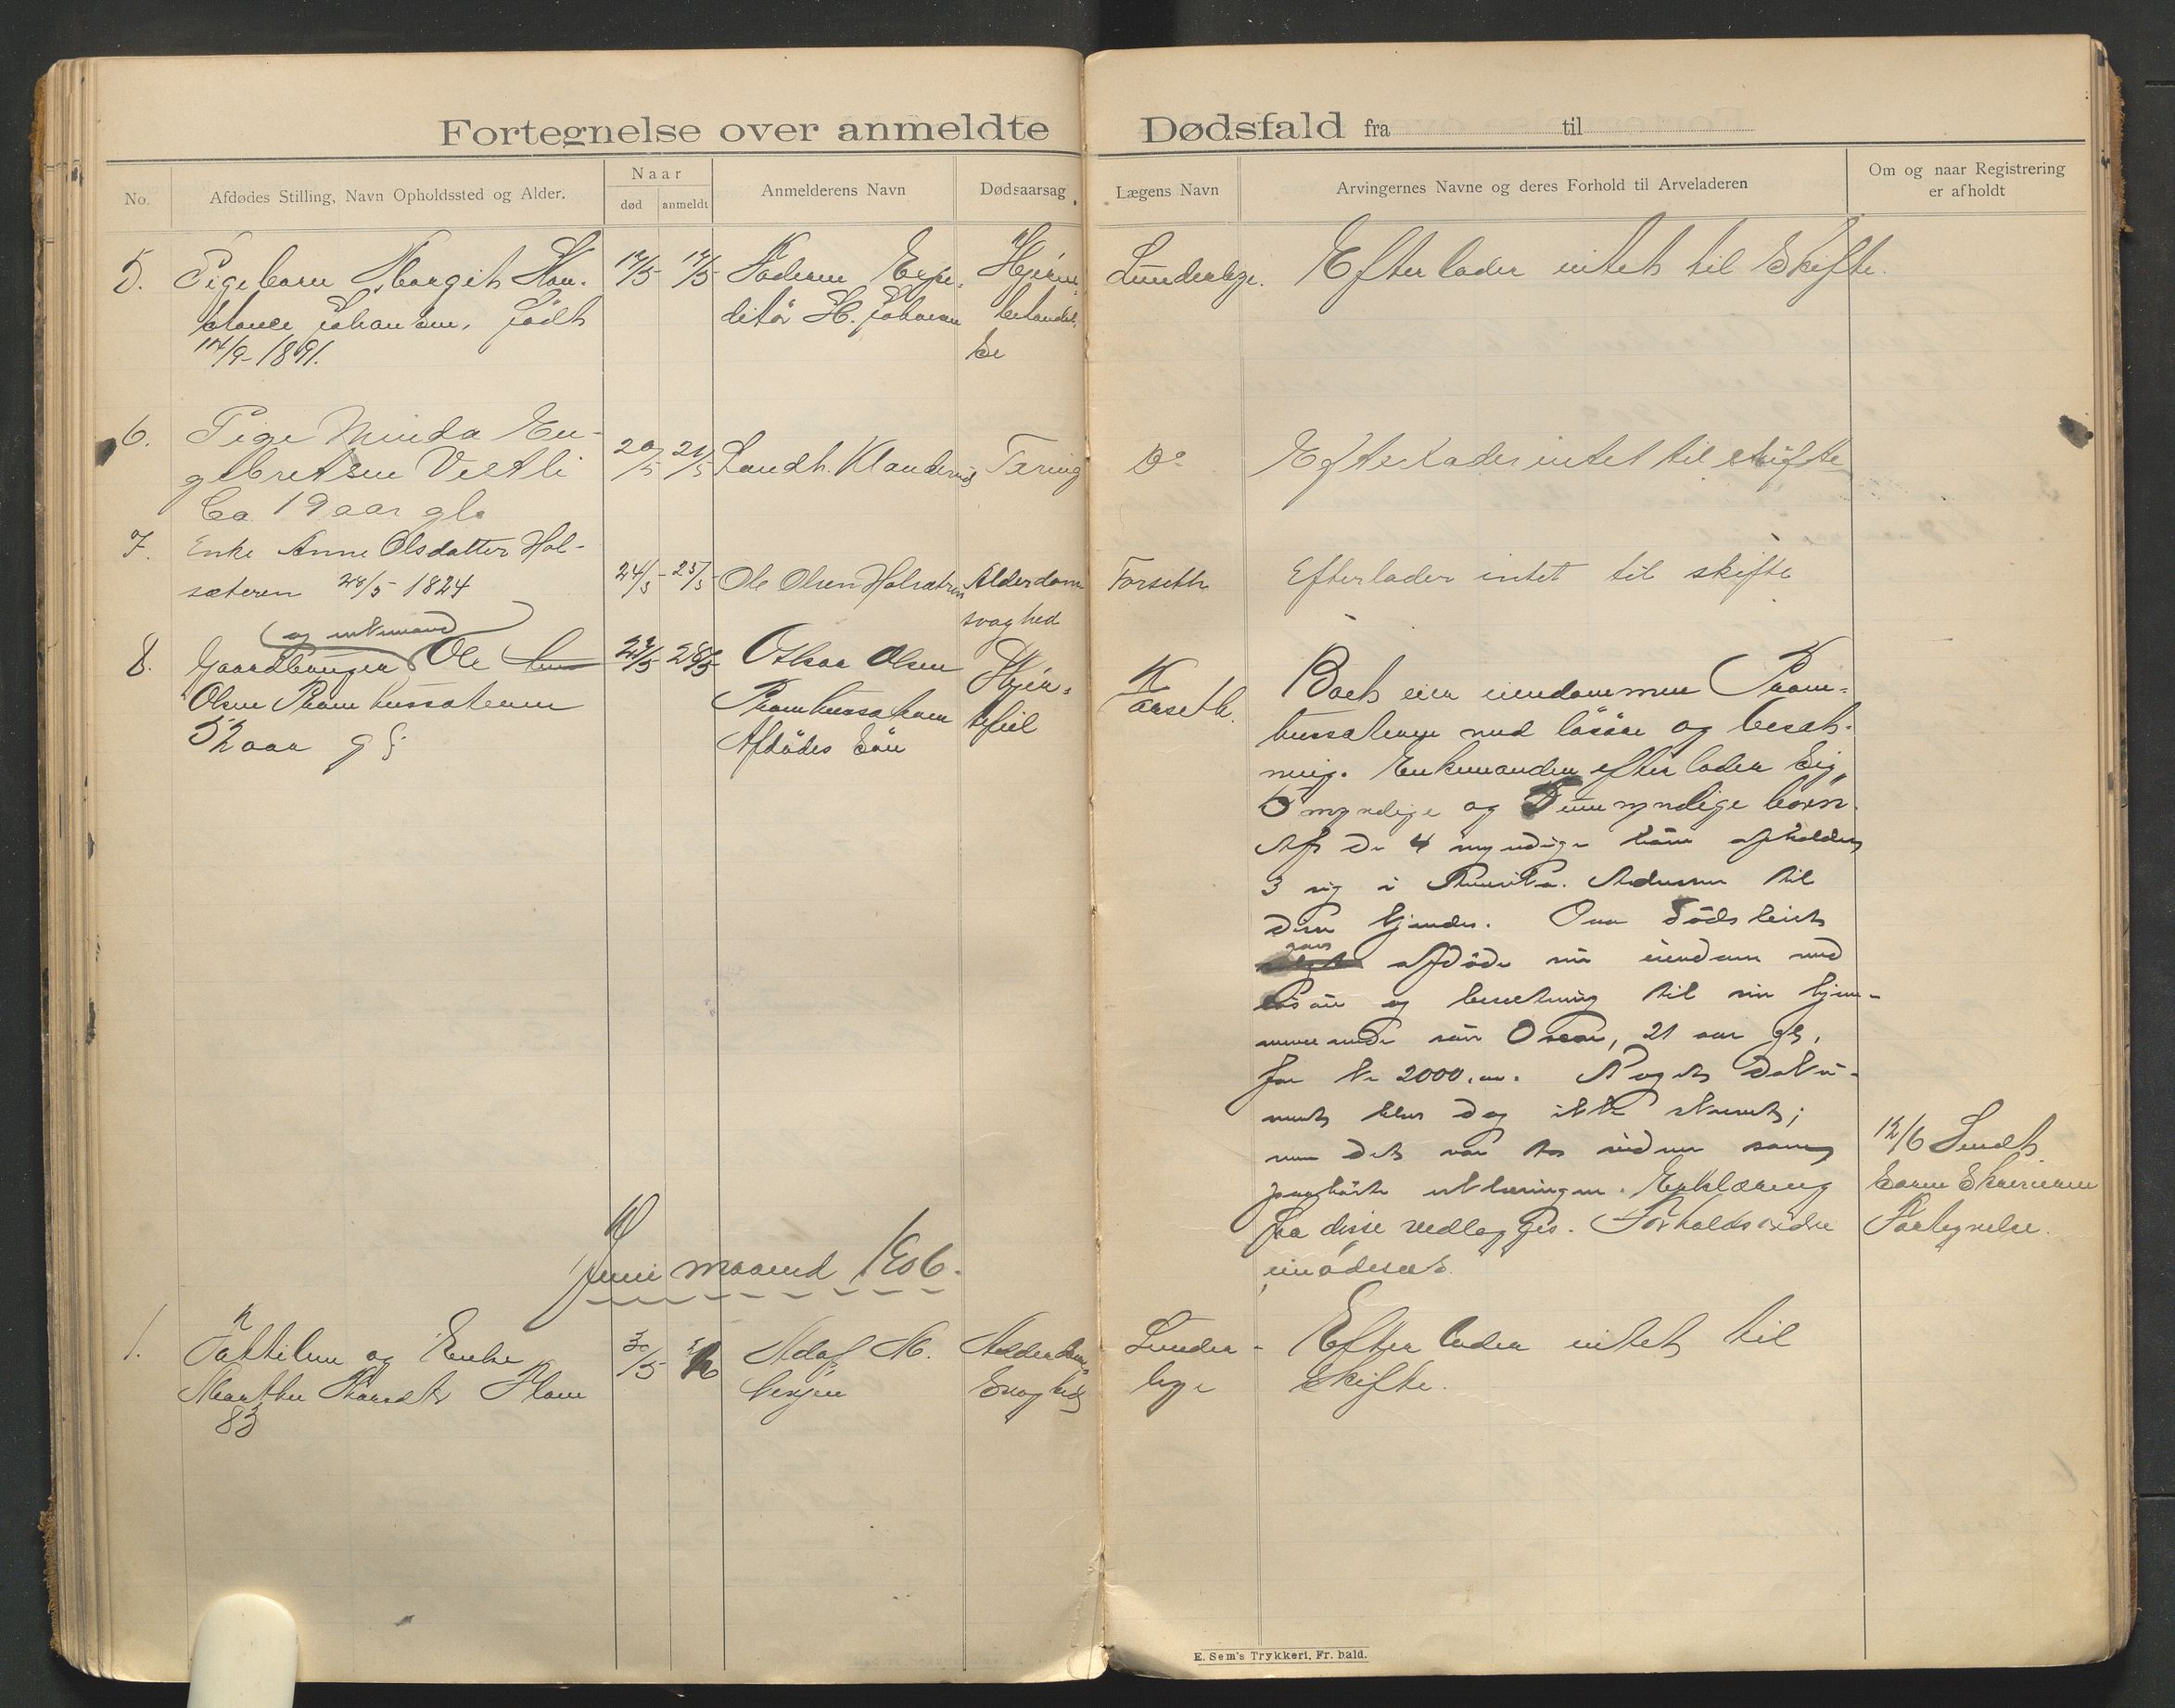 Fortegnelse over anmeldte Dødsfald fra til
No.
Afdødes Stilling, Navn Opholdssted og Alder.
Naar
død anmeldt
Anmelderens Navn
Dødsaarsag
Lægens Navn
Arvingernes Navne og deres Forhold til Arveladeren
Om og naar Registrering
er afholdt
5. Pigebarn Margit Kon-
Johansen, født
14/9-1891.
14/5 14/5
Faderen Expe-
ditør H. Johansen
Hjerne-
betændel-
se
Lunderbye. Efterlader intet til Skifte.
6. Pige Minda En-
gebretsen Vestli
Ca 19 aar gl.
20/5 21/5 Landh. Klanderud Tæring
Do Efterlader intet til skifte
7. Enke Anne Olsdatter Hol-
sæteren 28/5 1824
24/5 25/5 Ole Olsen Holsæteren Alderdoms
svaghed
Forseth Efterlader intet til skifte
og enkemand
8. Gaardbruger Ole
Olsen
52 aar gl.
28/5
Oskar Olsen
Afdødes Søn
Hjer-
tefeil
Forseth.
Boet eier eiendommen
med løsøre og besæt-
ning. Enkemanden efterlader sig
5 myndige og umyndige børn.
Af de 4 myndige børn opholder
3 sig i Amerika. Adressen til
dem kjendes. Paa dødsleiet
gav afdøde sin eiendom med
løsøre og besætning til sin hjem-
meværende søn Oscar, 21 aar gl,
for kr 2000.00. Noget doku-
ment blev dog ikke skrevet;
men det var to vidner som
paahørte. Erklæring
fra disse vedlægges. Forholdsordre
imødesees.
12/6 Sendt
Sorenskriveren
Fortegnelse.
Juni maaned 1906.
1. Fattiglem og Enke
Marthe
83
30/5
Adolf M.
Alderdoms
Svaghed
Lunder-
bye
Efterlader intet til
Skifte.
E. Sem's Trykkeri, Fr. hald.